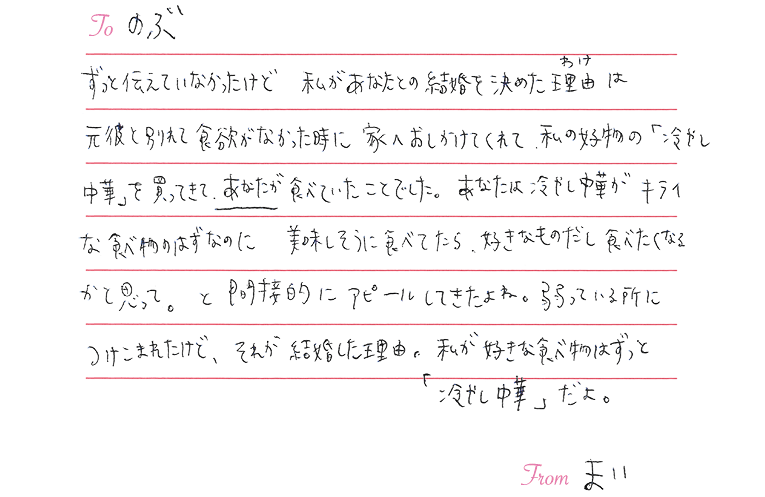 To のぶ
ずっと伝えていなかったけど 私があなたとの結婚を決めた理由(わけ)は
元彼と別れて食欲がなかった時に 家へおしかけてくれて、私の好物の「冷やし
中華」を買ってきて、あなたが食べていたことでした。あなたは冷やし中華がキライ
な食べ物のはずなのに 美味しそうに食べてたら、好きなものだし食べたくなる
かと思って。と間接的にアピールしてきたよね。弱っている所に
つけこまれたけど、それが結婚した理由。私が好きな食べ物はずっと
「冷やし中華」だよ。
From まい